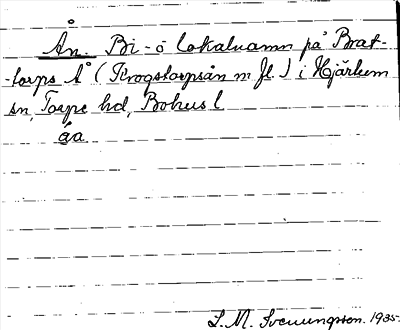 Ån. Bi-o lokalnamn på Brat-
-torps Å (Krogstorpsån m fl.) i Hjärtum
sn, Torpe hd, Bohus l
åa
L. M. Svenungsson. 1935.